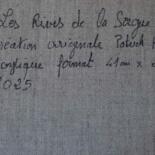 Les Rives de la Sorgue
création originale Patrick
acrylique format 41 cm x
2025